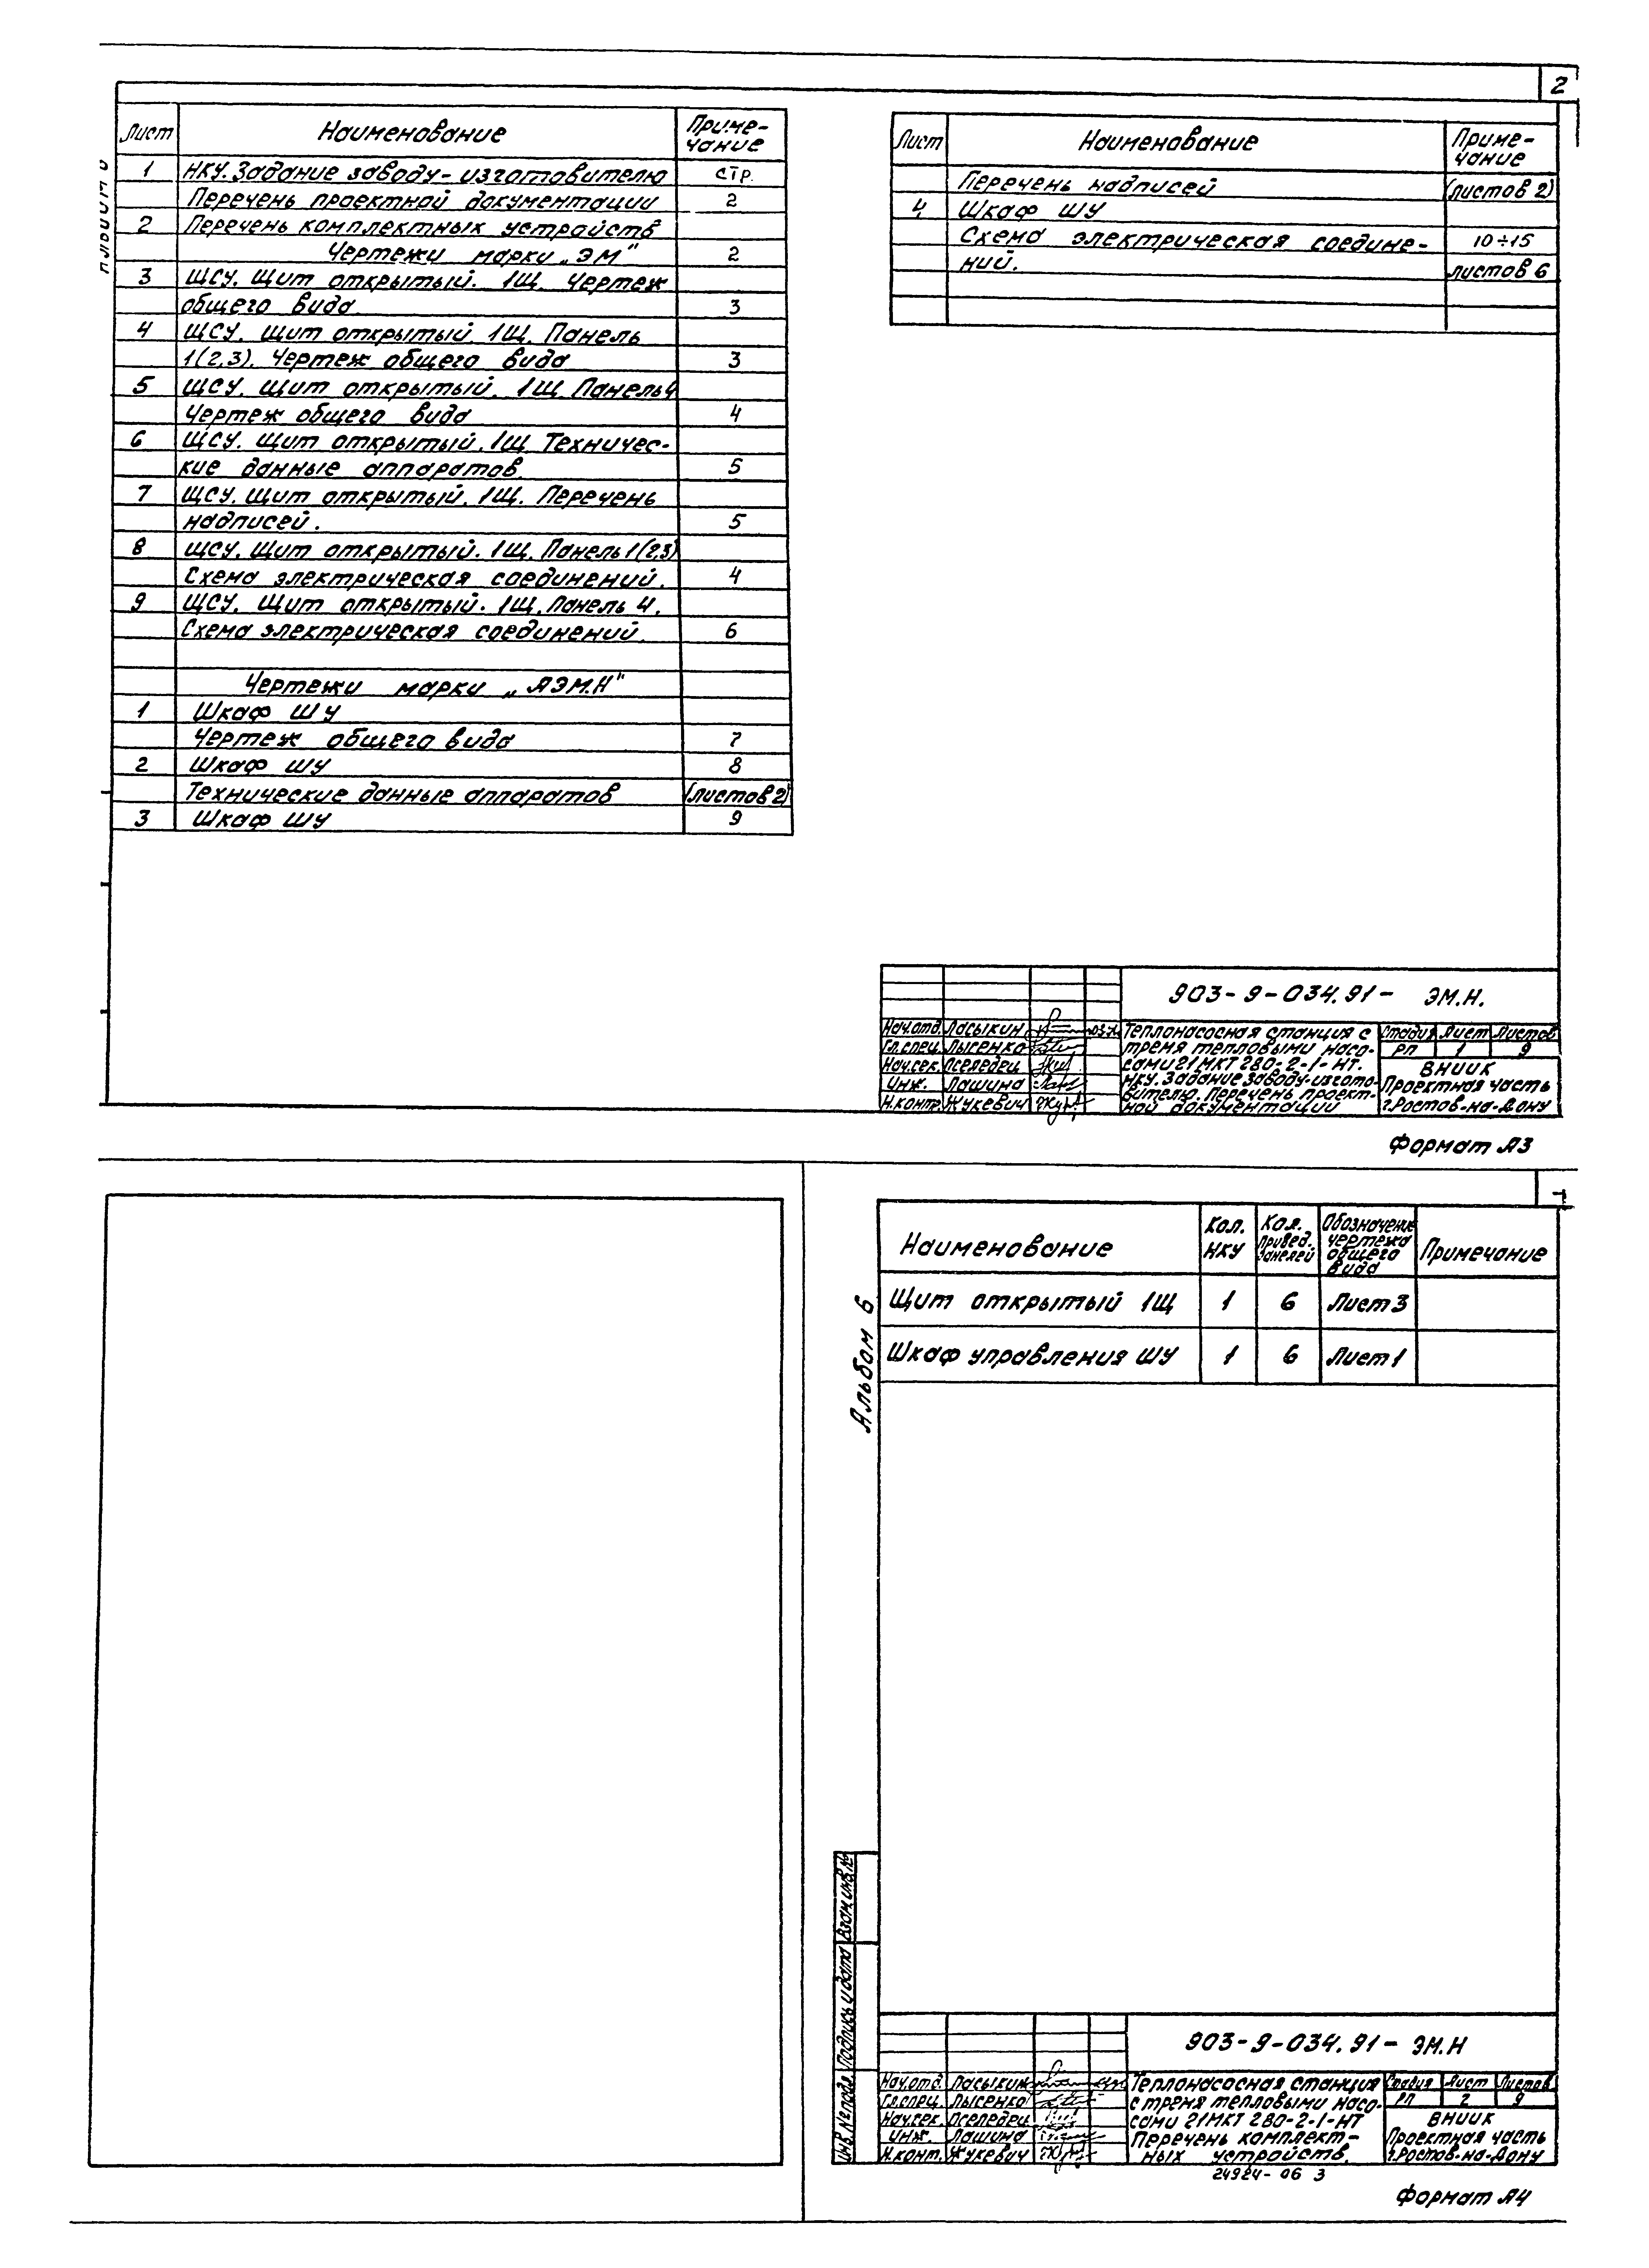 2
Лист Наименование Приме-
чание
1 НКУ. Задание заводу-изготовителю стр.
Перечень проектной документации 2
2 Перечень комплектных устройств
Чертежи марки „ЭМ" 2
3 ЩСУ. Щит открытый. 1Щ. Чертеж
общего вида 3
4 ЩСУ. Щит открытый. 1Щ. Панель
1(2,3). Чертеж общего вида 3
5 ЩСУ. Щит открытый. 1Щ. Панель 4
Чертеж общего вида 4
6 ЩСУ. Щит открытый. 1Щ. Техничес-
кие данные аппаратов. 5
7 ЩСУ. Щит открытый. 1Щ. Перечень
надписей. 5
8 ЩСУ. Щит открытый. 1Щ. Панель 1(2,3)
Схема электрическая соединений. 4
9 ЩСУ. Щит открытый. 1Щ. Панель 4.
Схема электрическая соединений. 6
Чертежи марки „АЭМ.Н"
1 Шкаф ШУ
Чертеж общего вида 7
2 Шкаф ШУ 8
Технические данные аппаратов (листов 2)
3 Шкаф ШУ 9
Лист Наименование Приме-
чание
Перечень надписей (листов 2)
4 Шкаф ШУ
Схема электрическая соедине- 10÷15
ний. листов 6
903-9-034.91- ЭМ.Н.
Нач.отд. Ласыкин
Гл.спец. Лысенко
Нач.сек. Пселедец
Инж. Лашина
Н.контр. Жукевич
Теплонасосная станция с
тремя тепловыми насо-
сами 21 МКТ 280-2-1-НТ.
НКУ. Задание заводу-изгото-
вителю. Перечень проект-
ной документации
Стадия Лист Листов
РП 1 9
ВНИИК
Проектная часть
г.Ростов-на-Дону
Формат А3
Альбом 6
Наименование Кол. НКУ Кол. привед. панелей Обозначение чертежа общего вида Примечание
Щит открытый 1Щ 1 6 Лист 3
Шкаф управления ШУ 1 6 Лист 1
Инв. № подл. Подпись и дата Взам.инв.№
903-9-034.91- ЭМ.Н
Нач.отд. Ласыкин
Гл.спец. Лысенко
Нач.сек. Пселедец
Инж. Лашина
Н.конт. Жукевич
Теплонасосная станция
с тремя тепловыми насо-
сами 21МКТ 280-2-1-НТ
Перечень комплект-
ных устройств.
Стадия Лист Листов
РП 2 9
ВНИИК
Проектная часть
г.Ростов-на-Дону
24924-06 3
Формат А4